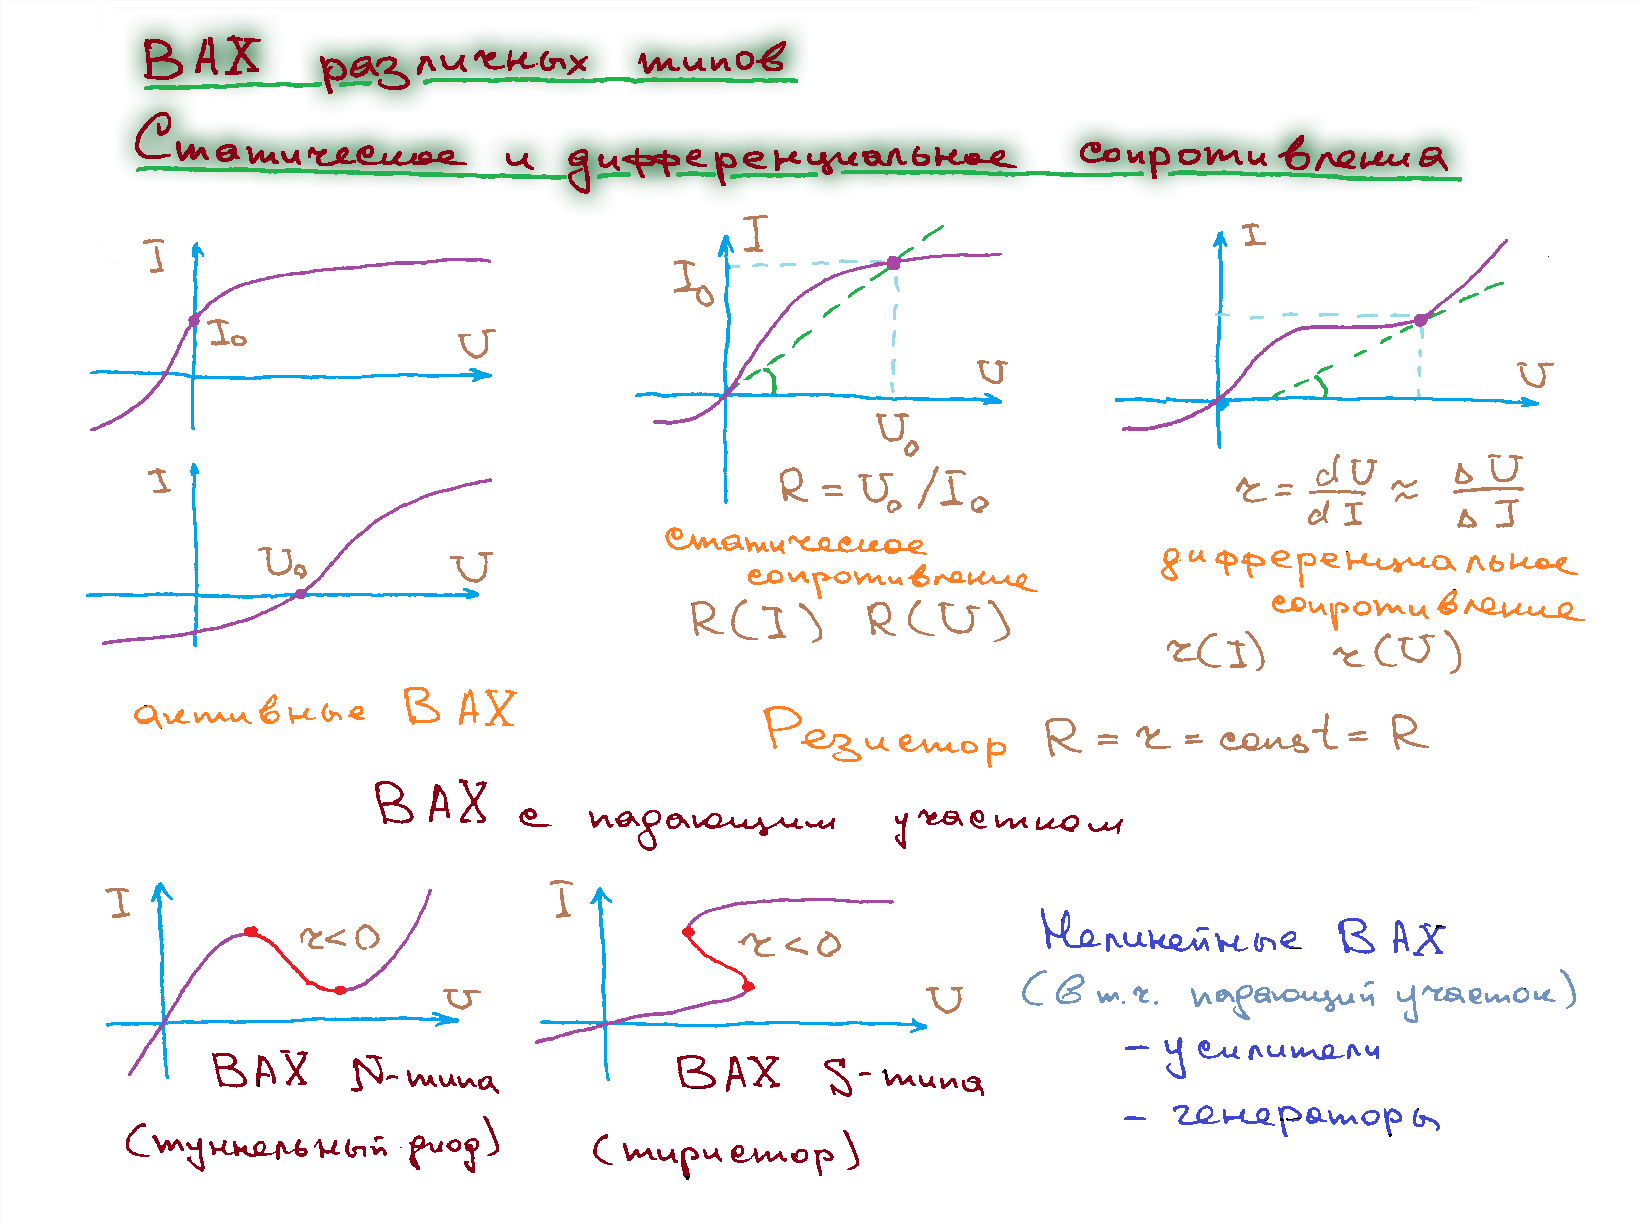 ВАХ различных типов
Статическое и дифференциальное сопротивления
I
I₀
U
I
U₀
U
активные ВАХ
I
I₀
U
U₀
R = U₀ / I₀
статическое
сопротивление
R(I) R(U)
I
U
r = dU/dI ≈ ΔU/ΔI
дифференциальное
сопротивление
r(I) r(U)
Резистор R = r = const = R
ВАХ с падающим участком
I
r<0
U
ВАХ N-типа
(туннельный диод)
I
r<0
U
ВАХ S-типа
(тиристор)
Нелинейные ВАХ
(в т.ч. падающий участок)
- усилители
- генераторы